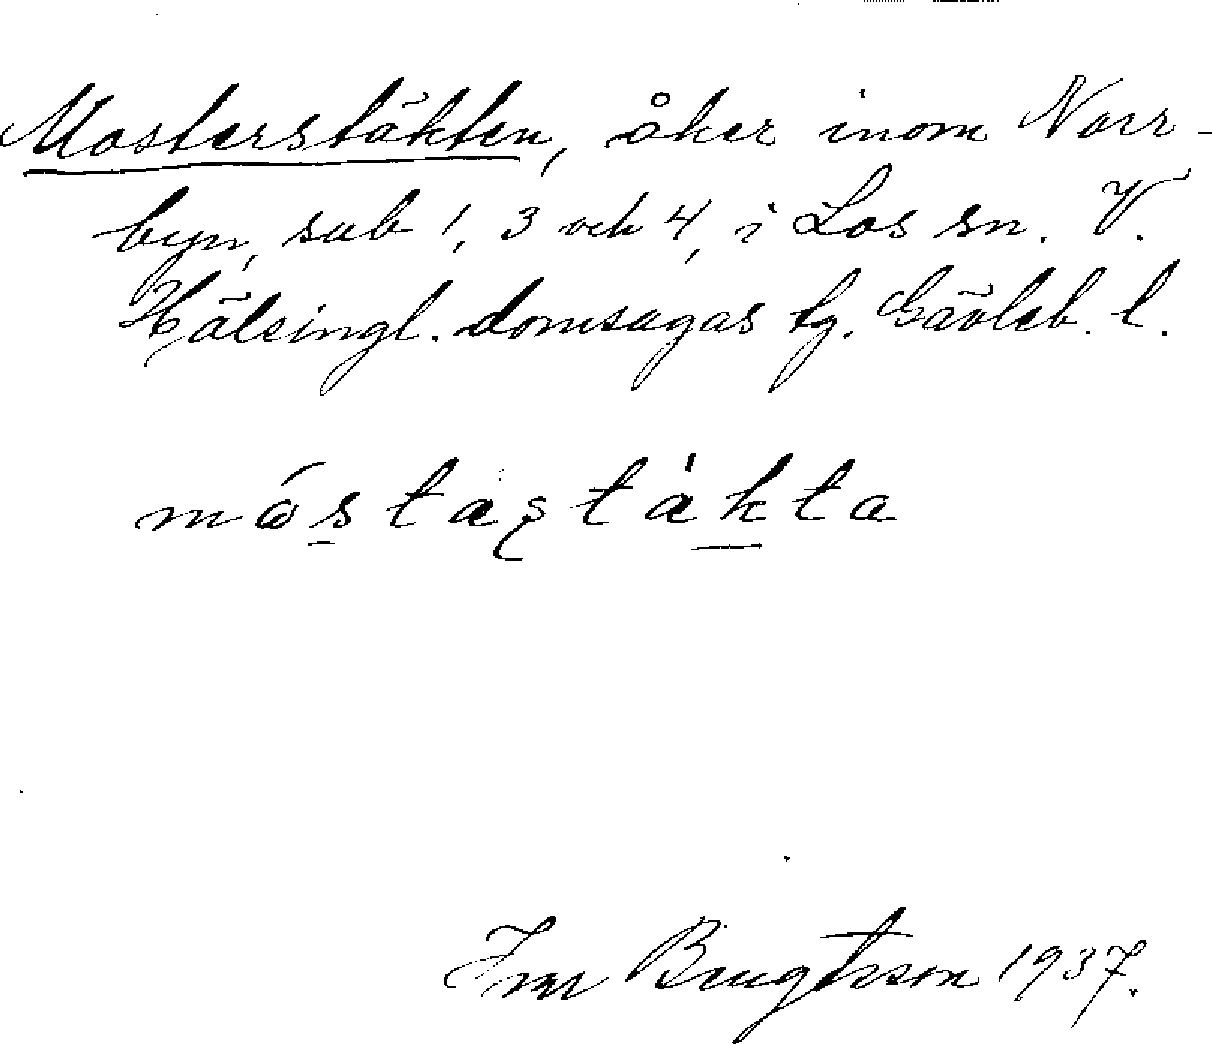 Mosterstäkten, åker inom Norr-
byn, sub 1, 3 och 4, i Los sn. V.
Hälsingl. domsagas tg. Gävleb. l.
mɷ́stastàkta
1937.